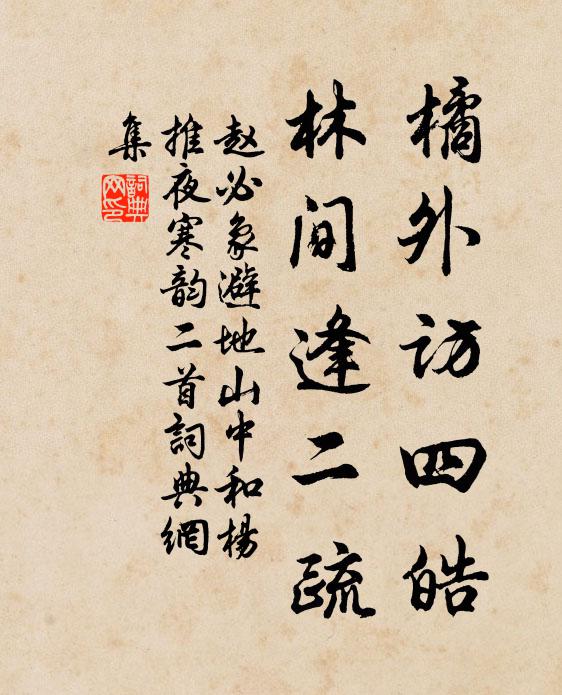 橘外访四皓
林间逢二疏
赵必象避地山中和杨
推夜寒韵二首词典網
集
詞典网印